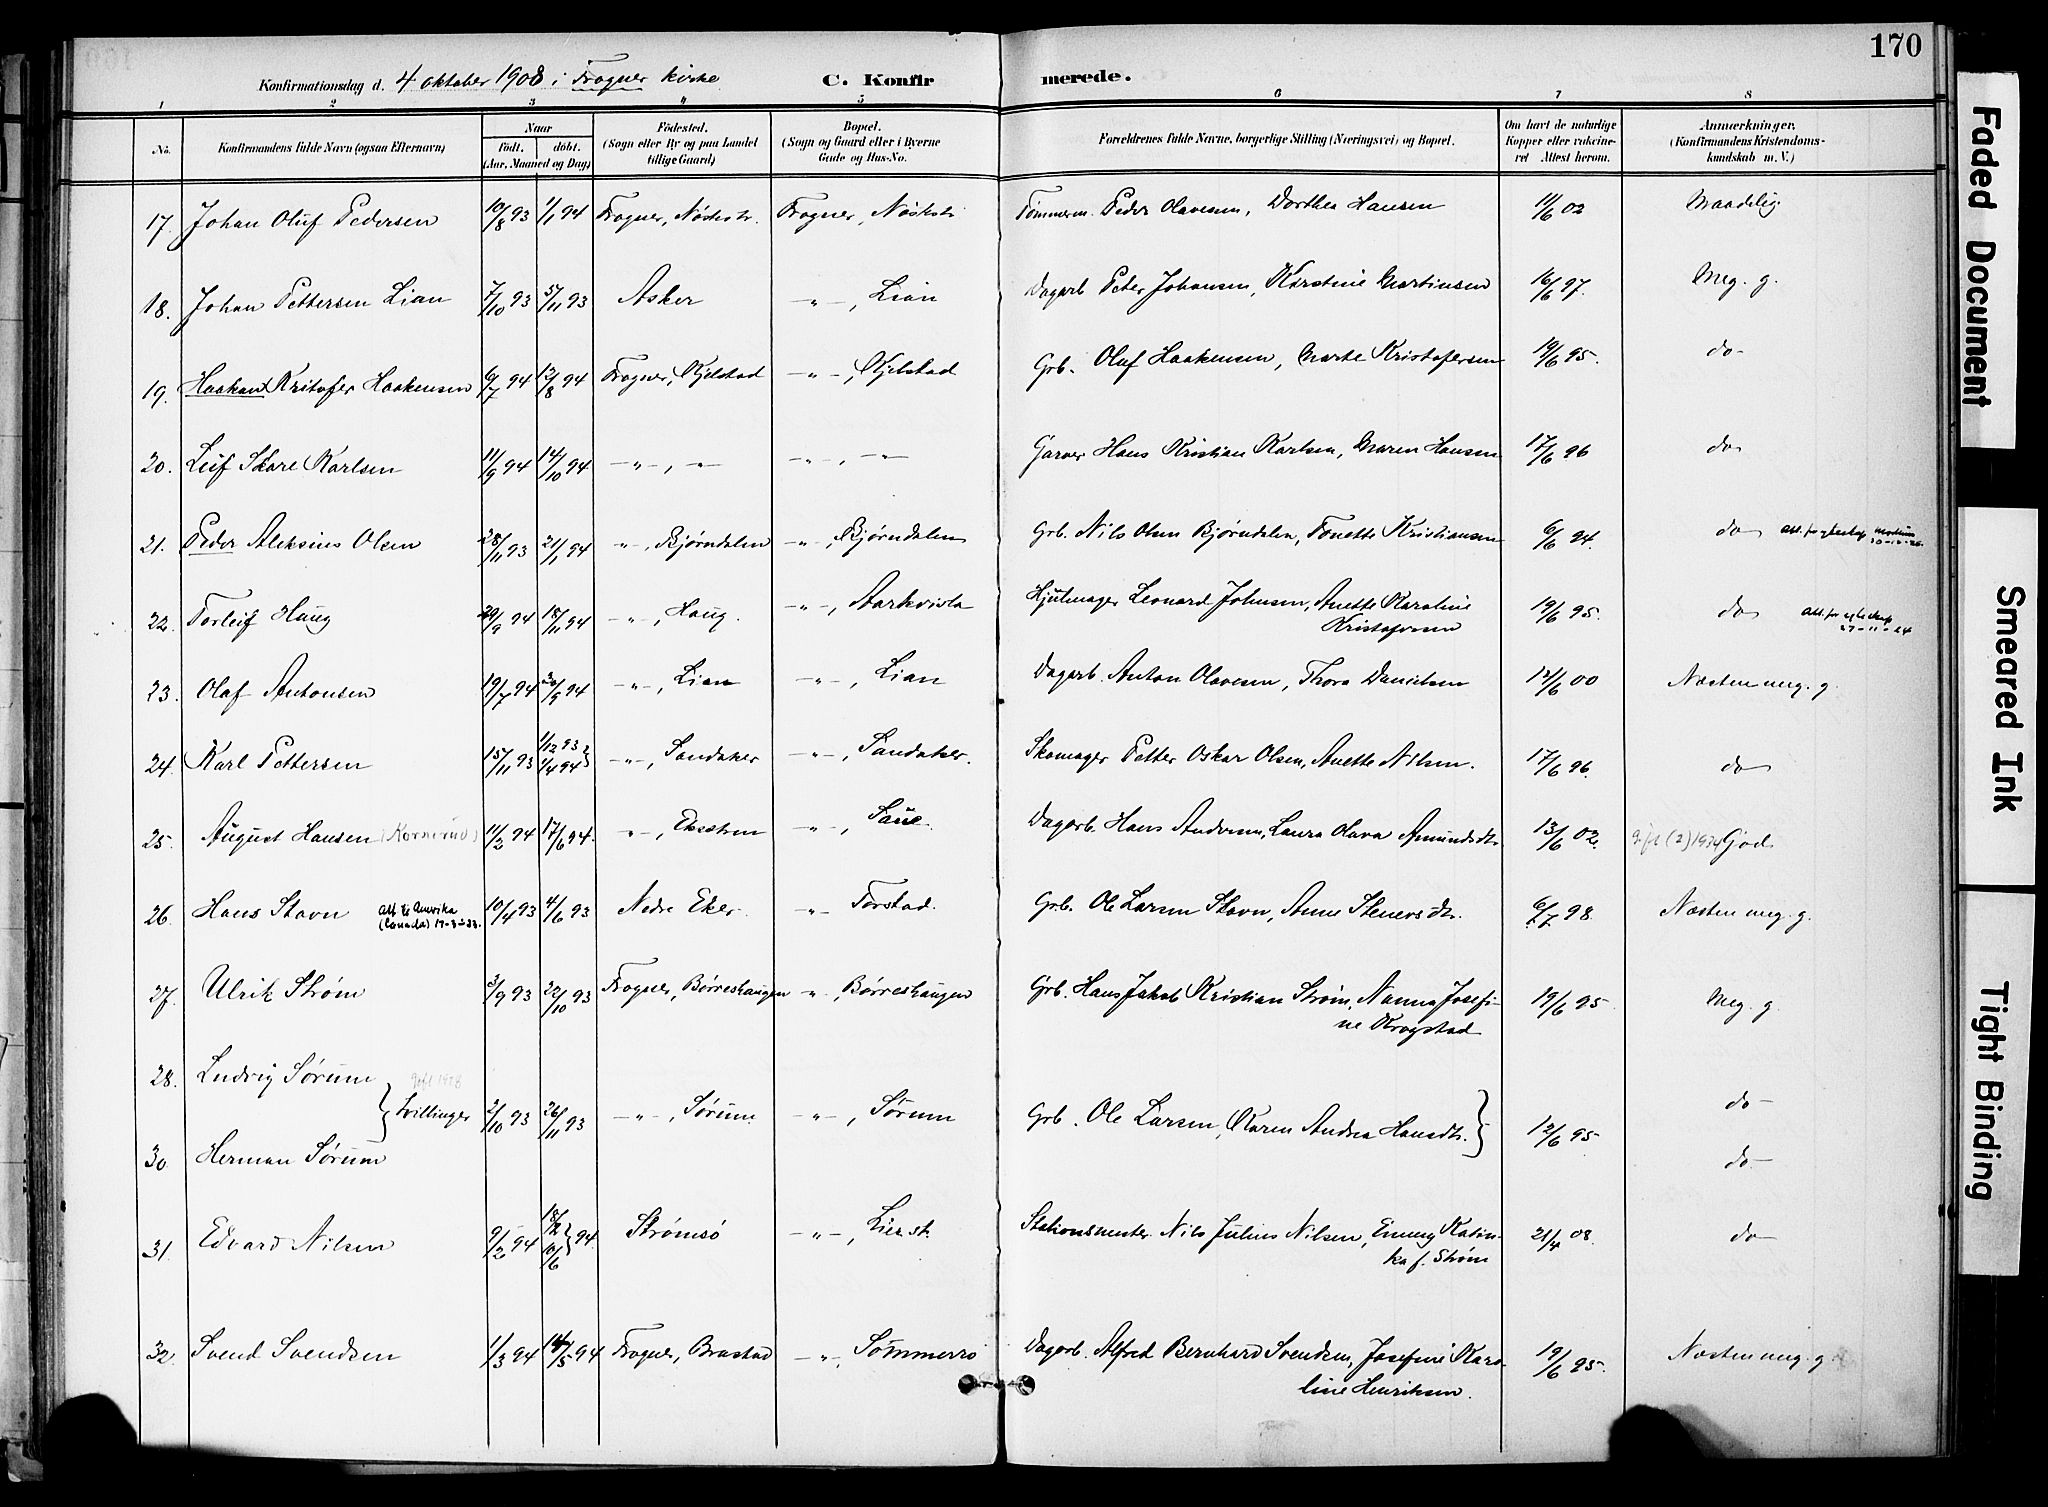 170
Konfirmationsdag d. 4 oktober 1908 i Frogner kirke C. Konfirmerede.
1 2 3 " 5 6 7 8
No. Konfirmandens fulde Navn (ogsaa Efternavn) Naar Født. døbt. (Aar, Maaned og Dag) Fødested. (Sogn eller By og paa Landet tillige Gaard) Bopæl. (Sogn og Gaard eller i Byerne Gade og Hus-No. Forældrenes fulde Navne, borgerlige Stilling (Næringsvei) og Bopæl. Om havt de naturlige Kopper eller vakcineret Attest herom. Anmærkninger. (Konfirmandens Kristendomskundskab m. V.)
17. Johan Oluf Pedersen 10/8 93 1/1 94 Frogner, Nøstestr. Frogner, Nøstestr. Tømmerm. Peder Olavesen, Dorthea Hansen 11/6 02 Maadelig
18. Johan Pettersen Lian 7/10 93 5/11 93 Asker -"-, Lian Dagarb. Peter Johansen, Kirstine Martinsen 16/6 97. Meg. g.
19. Haakan Kristofer Haakensen 6/7 94 12/8 94 Frogner, Kjelstad -"-, Kjelstad Grb. Olaf Haakensen, Marte Kristofersen 19/6 95. do-
20. Leif Skare Karlsen 11/9 94 14/10 94 -"-, -"- -"-, -"- Garver Hans Kristian Karlsen, Maren Hansen 17/6 96 do
21. Peder Aleksius Olsen 28/11 93 21/1 94 -"-, Bjørndalen -"-, Bjørndalen Grb. Nils Olsen Bjørndalen, Tonette Kristiansen 6/6 94. do Att. for
22. Torleif Haug 29/9 94 18/11 94 -"-, Haug. -"-, Aarkvisla Hjulmager Leonard Johnsen, Anette Karoline Kristofersen 19/6 95. do Att. for
27-11-24
23. Olaf Antonsen 19/7 94 30/9 94 -"-, Lian -"-, Lian Dagarb. Anton Olavesen, Thora Danielsen 12/6 00 Næsten meg. g.
24. Karl Pettersen 15/11 93 1/12 93 1/4 94 } -"-, Sandaker -"-, Sandaker. Skomager Petter Oskar Olsen, Anette Nilsen. 17/6 96. do
25. August Hansen (Kornerud) 11/2 94 17/6 94. -"-, Eksten -"-, Saue Dagarb. Hans Andersen, Laura Olava Amundsdt. 13/6 02. gift (2) 1934 God.
26. Hans Stavn Att. til Amerika (Canada) 17-3-28. 10/4 93 4/6 93 Nedre Eker -"- Torstad. Grb. Ole Larsen Stavn, Anne Stenersdt. 6/7 98. Næsten meg. g.
27. Ulrik Strøm 3/9 93 22/10 93 Frogner, Børreshaugen -"-, Børreshaugen Grb. Hans Jakob Kristian Strøm, Nanna Josefine Krogstad 19/6 95. Meg. g.
28. Ludvig Sørum gift 1928 do-
} Tvillinger 2/10 93 26/11 93 -"-, Sørum. -"-, Sørum Grb. Ole Larsen, Karen Andrea Hansdt. } 12/6 95.
30. Herman Sørum do-
31. Edvard Nilsen 9/2 94 18/2 10/6 } 94. Strømsø -"-, Lier st. Stationsmester Nils Julius Nilsen, Emmy Katinka f. Strøm 21/4 08. do
32. Svend Svendsen 1/3 94 14/5 94 Frogner, Brastad -"-, Sommerro Dagarb. Alfred Bernhard Svendsen, Josefine Karoline Henriksen. 19/6 95. Næsten meg. g
Faded Document
Smeared Ink
Tight Binding